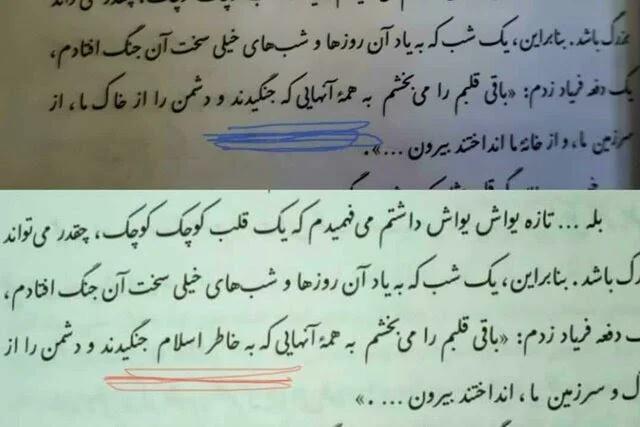 بزرگ باشد. بنابراین، یک شب که به یاد آن روزها و شب‌های خیلی سخت آن جنگ افتادم،
یک دفعه فریاد زدم: «باقی قلبم را می‌بخشم به همهٔ آنهایی که جنگیدند و دشمن را از خاک ما، از
سرزمین ما، و از خانهٔ ما انداختند بیرون ...».
بله ... تازه یواش یواش داشتم می‌فهمیدم که یک قلب کوچک کوچک، چقدر می‌تواند
رگ باشد. بنابراین، یک شب که به یاد آن روزها و شب‌های خیلی سخت آن جنگ افتادم،
ک دفعه فریاد زدم: «باقی قلبم را می‌بخشم به همهٔ آنهایی که به خاطر اسلام جنگیدند و دشمن را از
ک و سرزمین ما، انداختند بیرون ... .»